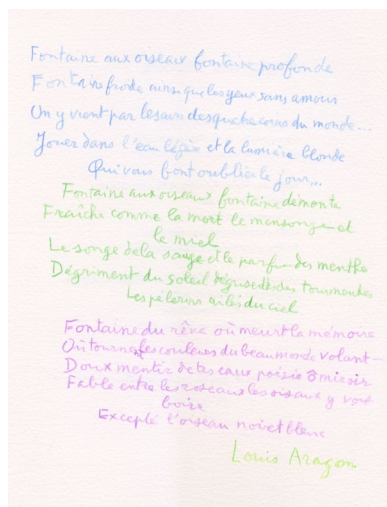 Fontaine aux oiseaux fontaine profonde
Fontaine froide ainsi que les yeux sans amour
On y vient par les airs des quatre coins du monde...
Jouer dans l'eau légère et la lumière blonde
Qui vous font oublier le jour...
Fontaine aux oiseaux fontaine
Fraîche comme la mort le mensonge et
le miel
Le songe de la sauge et le parfum des menthe
du soleil des tourmentes
Les pèlerins ailés du ciel
Fontaine du rêve où meurt la mémoire
Où tournent les couleurs du beau monde volant
Doux mentir de tes eaux poésie ô miroir
Fable entre les roseaux les oiseaux y vont
boire
Excepté l'oiseau noir et blanc
Louis Aragon